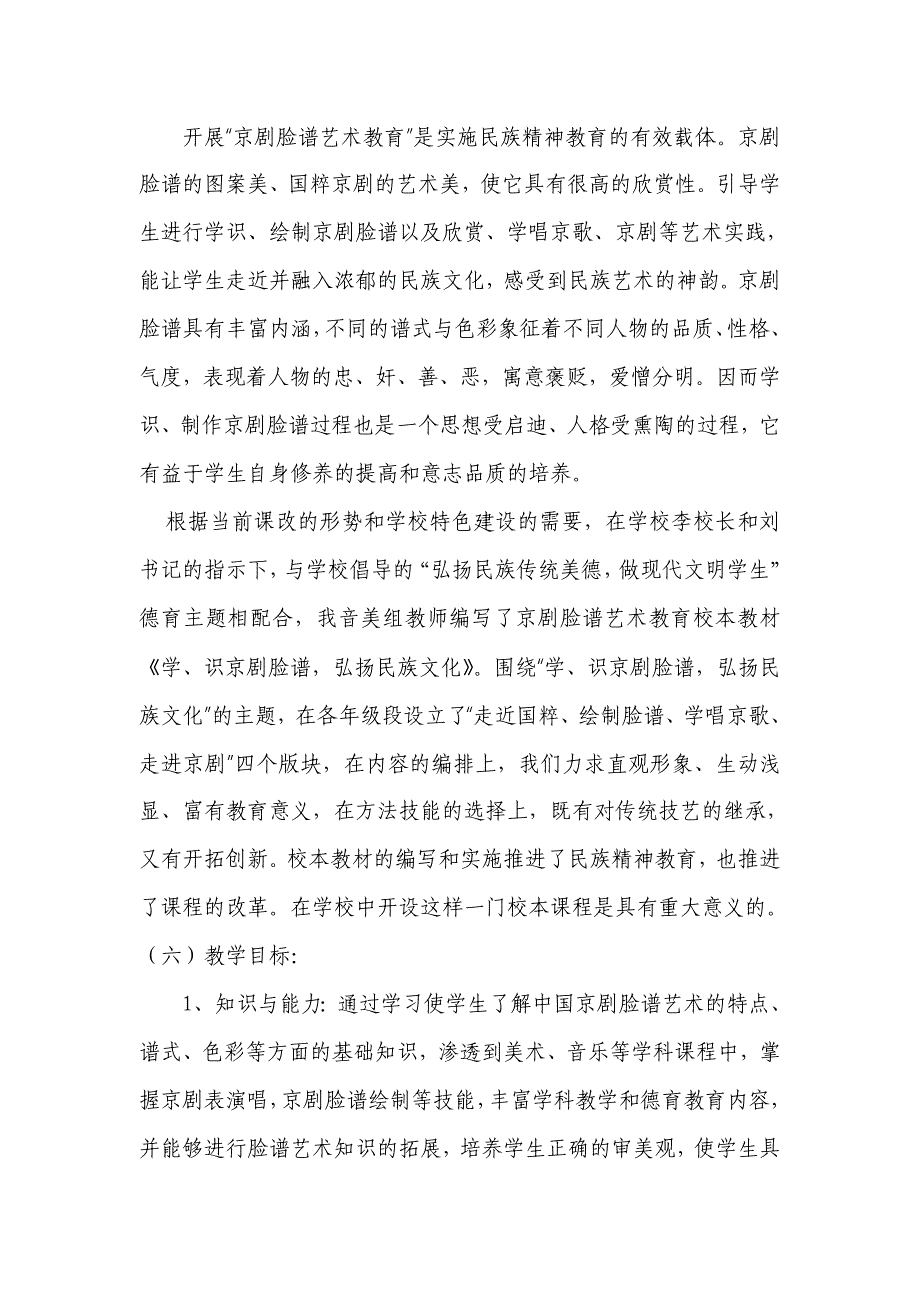 开展“京剧脸谱艺术教育”是实施民族精神教育的有效载体。京剧
脸谱的图案美、国粹京剧的艺术美，使它具有很高的欣赏性。引导学
生进行学识、绘制京剧脸谱以及欣赏、学唱京歌、京剧等艺术实践，
能让学生走近并融入浓郁的民族文化，感受到民族艺术的神韵。京剧
脸谱具有丰富内涵，不同的谱式与色彩象征着不同人物的品质、性格、
气度，表现着人物的忠、奸、善、恶，寓意褒贬，爱憎分明。因而学
识、制作京剧脸谱过程也是一个思想受启迪、人格受熏陶的过程，它
有益于学生自身修养的提高和意志品质的培养。
根据当前课改的形势和学校特色建设的需要，在学校李校长和刘
书记的指示下，与学校倡导的“弘扬民族传统美德，做现代文明学生”
德育主题相配合，我音美组教师编写了京剧脸谱艺术教育校本教材
《学、识京剧脸谱，弘扬民族文化》。围绕“学、识京剧脸谱，弘扬民
族文化”的主题，在各年级段设立了“走近国粹、绘制脸谱、学唱京歌、
走进京剧”四个版块，在内容的编排上，我们力求直观形象、生动浅
显、富有教育意义，在方法技能的选择上，既有对传统技艺的继承，
又有开拓创新。校本教材的编写和实施推进了民族精神教育，也推进
了课程的改革。在学校中开设这样一门校本课程是具有重大意义的。
（六）教学目标：
1、知识与能力：通过学习使学生了解中国京剧脸谱艺术的特点、
谱式、色彩等方面的基础知识，渗透到美术、音乐等学科课程中，掌
握京剧表演唱，京剧脸谱绘制等技能，丰富学科教学和德育教育内容，
并能够进行脸谱艺术知识的拓展，培养学生正确的审美观，使学生具